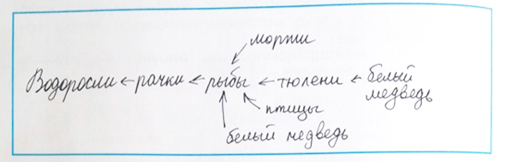 моржи
Водоросли ← рачки ← рыбы ← тюлени ← белый медведь
птицы
белый медведь